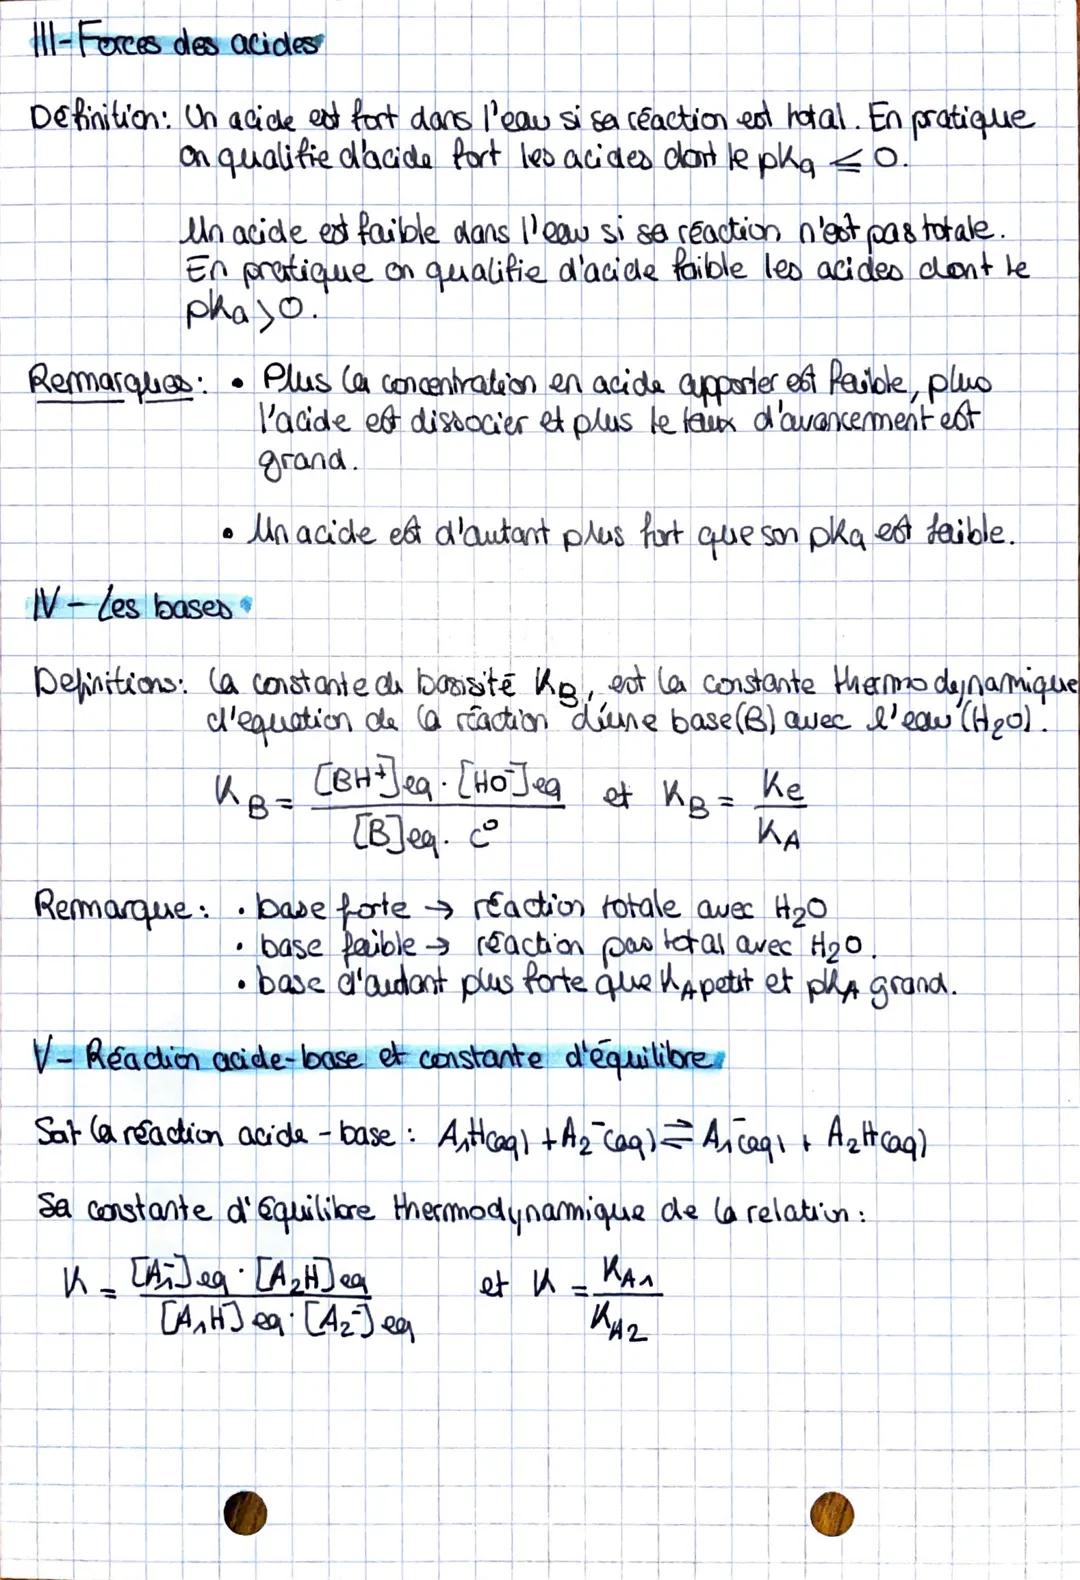 III-Forces des acides
Définition: Un acide est fort dans l'eau si sa réaction est total. En pratique
on qualifie d'acide fort les acides dont le pKa ⩽ 0.
Un acide est faible dans l'eau si sa réaction n'est pas totale.
En pratique on qualifie d'acide faible les acides dont le
pka > 0.
Remarques: • Plus la concentration en acide apporter est faible, plus
l'acide est dissocier et plus le taux d'avancement est
grand.
• Un acide est d'autant plus fort que son pKa est faible.
IV - Les bases
Definitions: la constante du basisité KB, est la constante thermodynamique
d'equation de la réaction d'une base (B) avec l'eau (H2O).
KB = [BH+]eq · [HO-]eq / [B]eq · c° et KB = Ke / KA
Remarque: • base forte → réaction totale avec H2O
• base faible → réaction pas total avec H2O.
• base d'autant plus forte que KA petit et pKA grand.
V - Réaction acide-base et constante d'équilibre
Soit la réaction acide-base : A1H(aq) + A2-(aq) ⇌ A1-(aq) + A2H(aq)
Sa constante d'équilibre thermodynamique de la relation :
K = [A1-]eq · [A2H]eq / [A1H]eq · [A2-]eq et K = KA1 / KA2